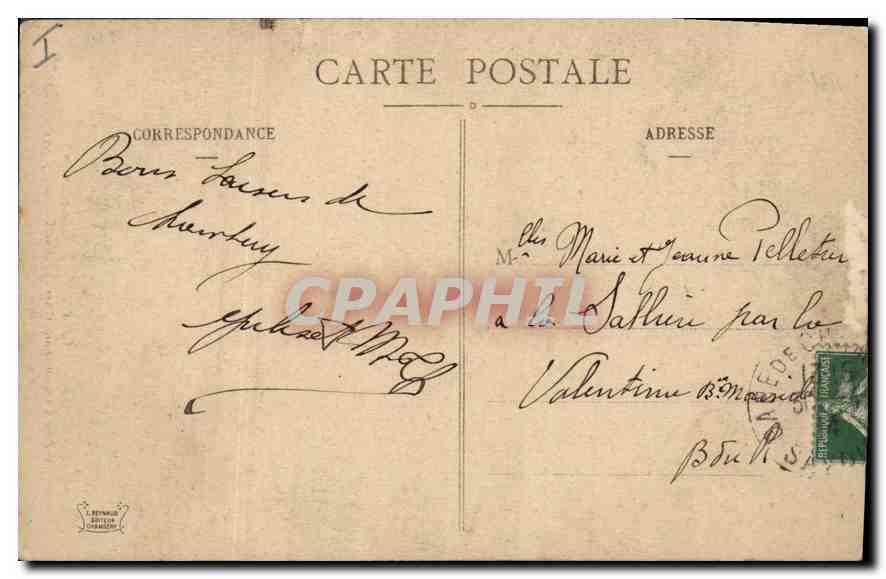 I
CARTE POSTALE
CORRESPONDANCE
ADRESSE
Bons baisers de
Chambery
Mlles Marie et Jeanne Pelletier
à la Sallière par la
Valentine Bse Marseille
B du R
CPAPHIL
RÉPUBLIQUE FRANÇAISE
GARE DE CH
SAVOIE
L. REYNAUD
EDITEUR
CHAMBÉRY